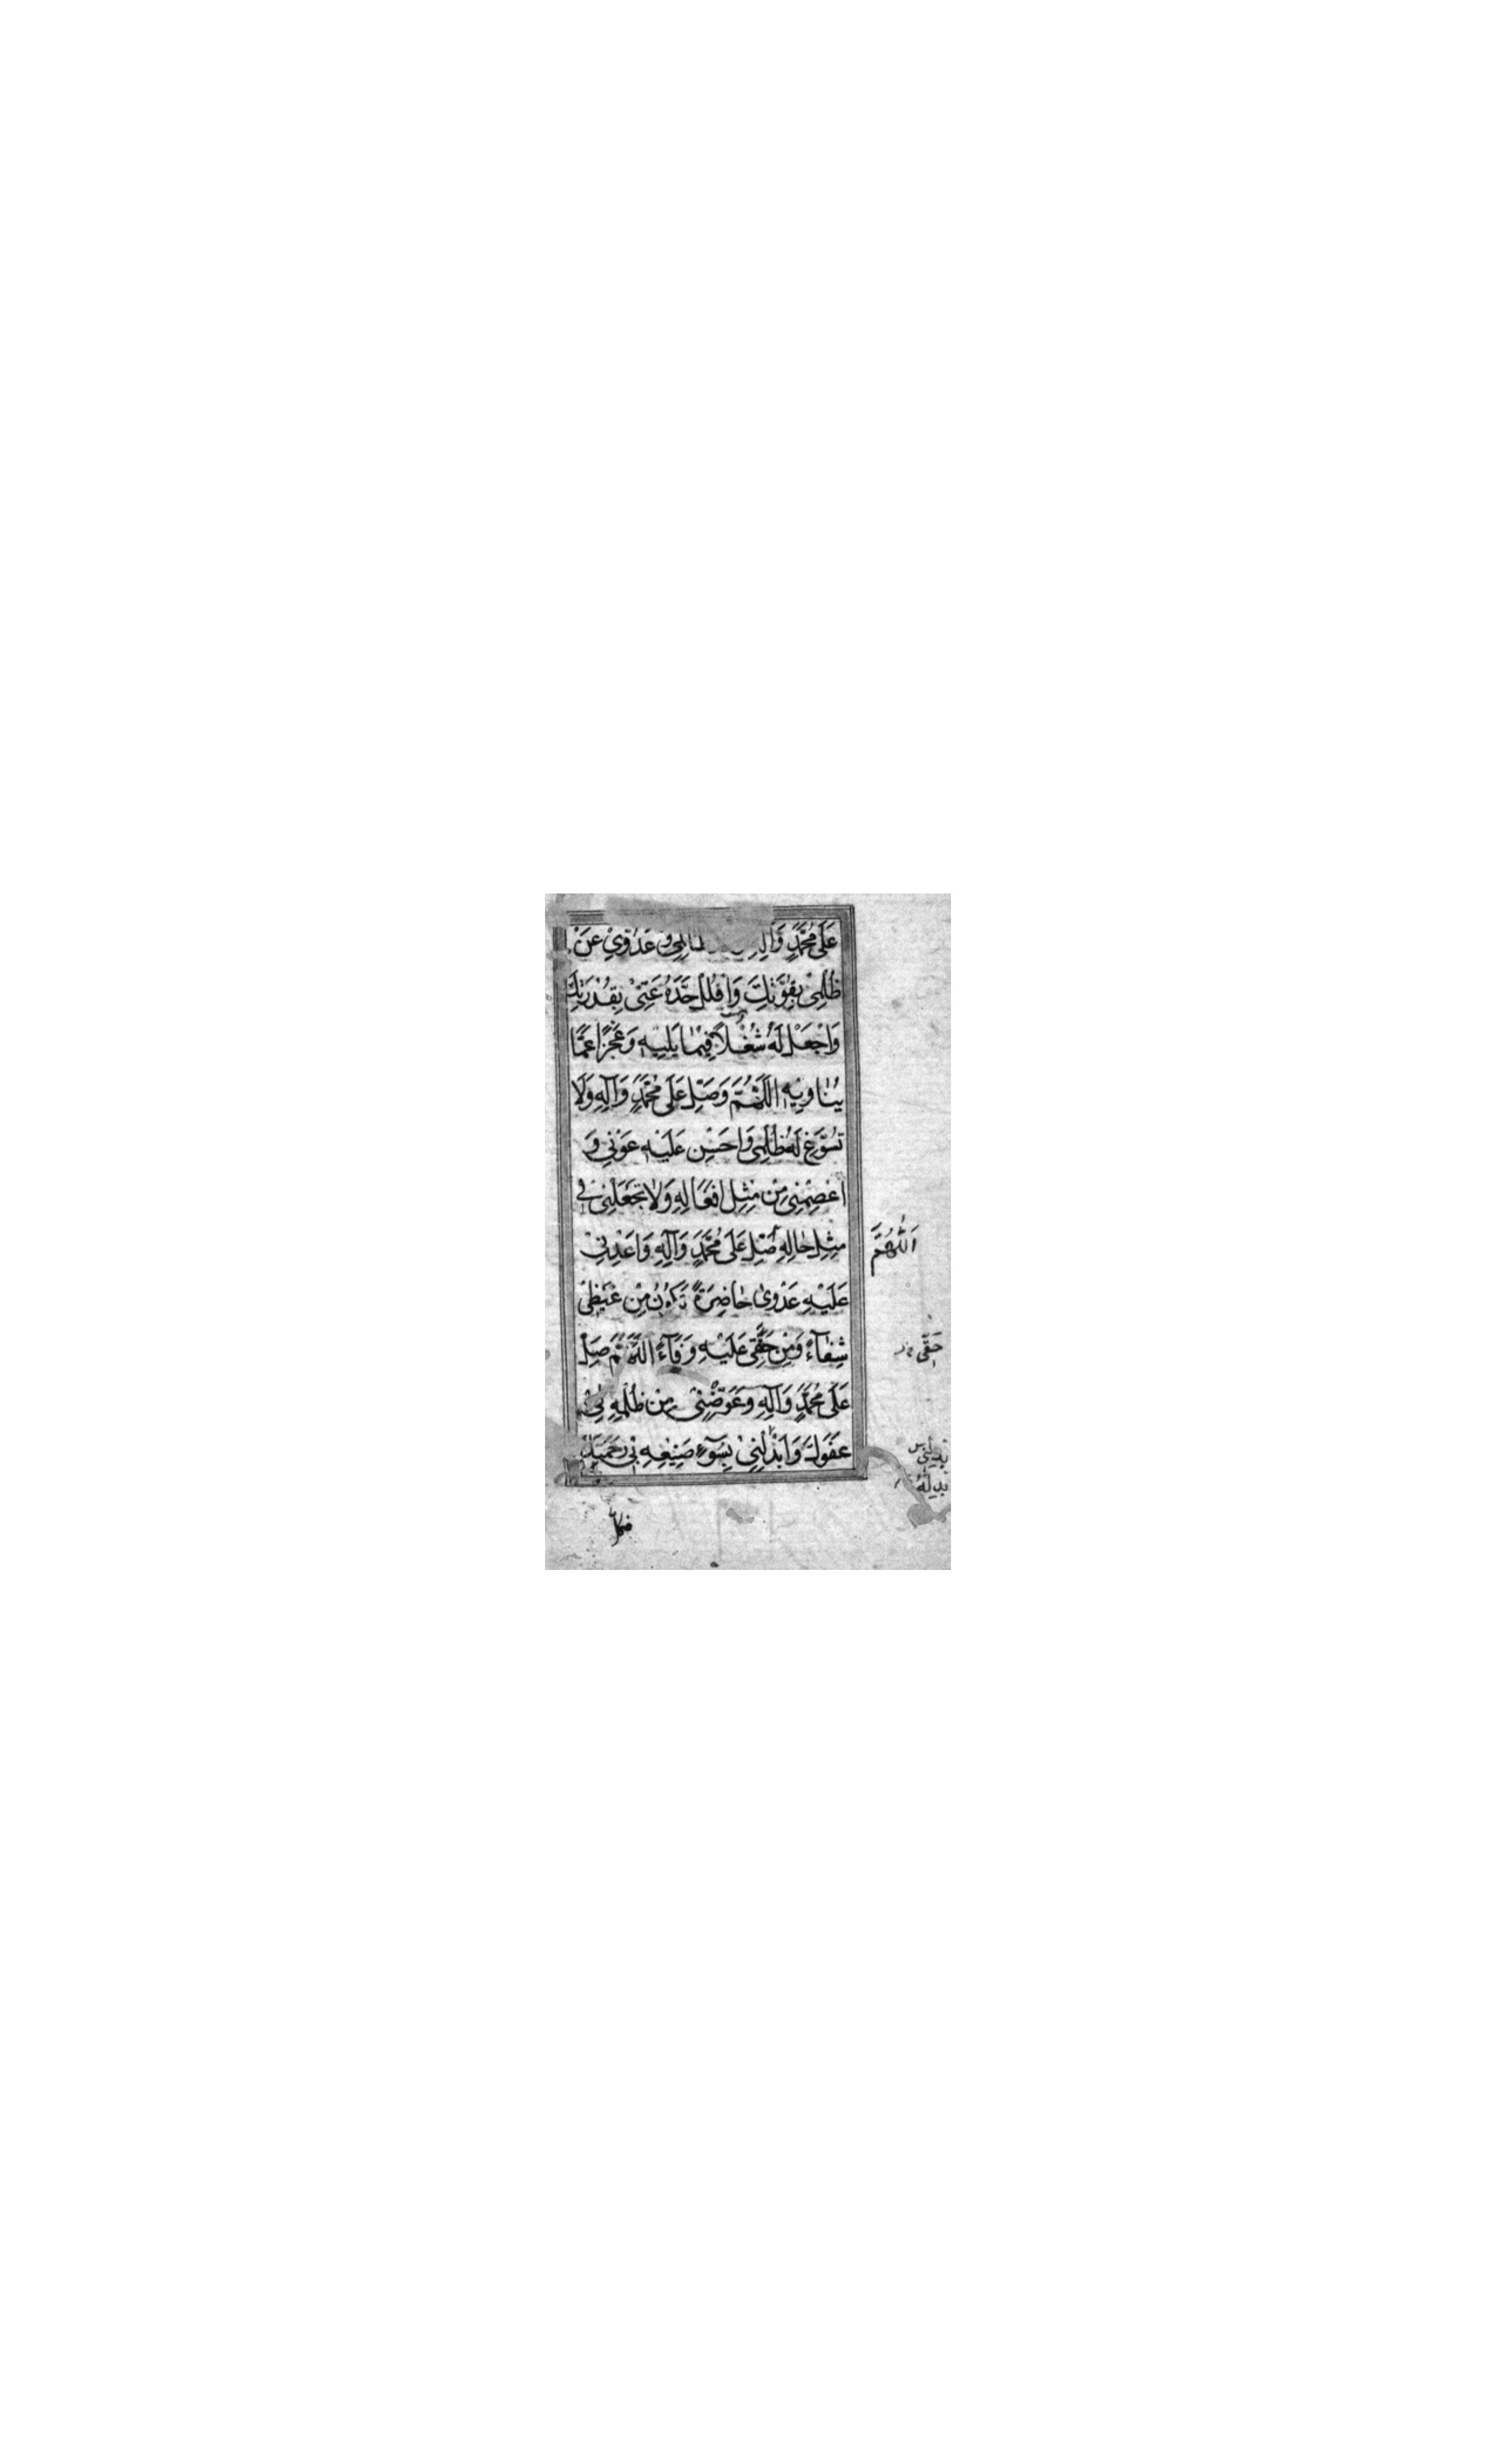 عَلَى مُحَمَّدٍ وَآلِهِ ظَالِمِي وَعَدُوِّي عَنْ
ظُلْمِي بِقُوَّتِكَ وَافْلُلْ حَدَّهُ عَنِّي بِقُدْرَتِكَ
وَاجْعَلْ لَهُ شُغْلاً فِيمَا يَلِيهِ وَعَجْزًا عَمَّا
يُنَاوِيهِ اَللَّهُمَّ وَصَلِّ عَلَى مُحَمَّدٍ وَآلِهِ وَلَا
تُسَوِّغْ لَهُ ظُلْمِي وَاحْسِنْ عَلَيْهِ عَوْنِي وَ
اعْصِمْنِي مِنْ مِثْلِ اَفْعَالِهِ وَلَا تَجْعَلْنِي فِي
مِثْلِ حَالِهِ صَلِّ عَلَى مُحَمَّدٍ وَآلِهِ وَاَعْدِنِي
اَللّٰهُمَّ
عَلَيْهِ عَدْوٰى حَاضِرَةً تَكُونُ مِنْ غَيْظِي
شِفَآءً وَمِنْ حَقِّي عَلَيْهِ وَفَآءً اَللَّهُمَّ صَلِّ
حَقِّى
عَلَى مُحَمَّدٍ وَآلِهِ وَعَوِّضْنِي مِنْ ظُلْمِهِ لِي
عَفْوَكَ وَاَبْدِلْنِي بِسُوٓءِ صَنِيعِهِ بِي رَحْمَتَكَ
فكل